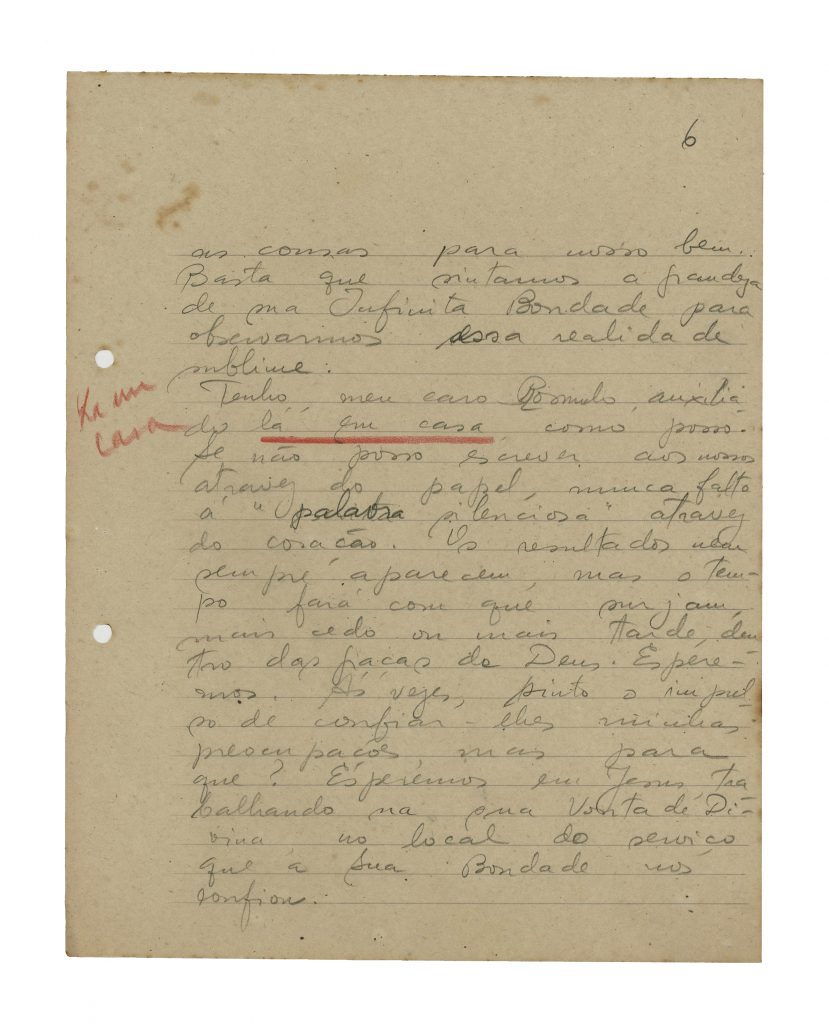 6
as cousas para nosso bem.
Basta que sintamos a grandeza
de sua Infinita Bondade para
observarmos essa realidade
sublime.
Tenho, meu caro Romulo, auxilia
do lá em casa, como posso.
Se não posso escrever aos nossos
atravez do papel, nunca falto
á "palavra silenciosa" atravez
do coração. Os resultados nem
sempre aparecem, mas o tem-
po fará com que surjam,
mais cedo ou mais tarde, den
tro das graças de Deus. Espere-
mos. Ás vezes, sinto o impul
so de confiar-lhes minhas
preocupações mas para
que? Esperemos em Jesus, tra
balhando na sua Vontade Di-
vina no local do serviço
que a Sua Bondade nos
confiou.
casa